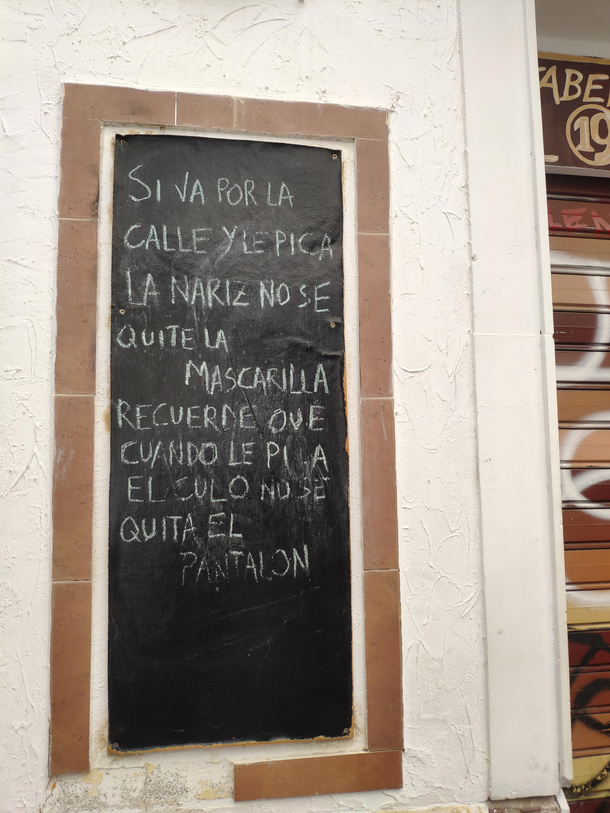 SI VA POR LA
CALLE Y LE PICA
LA NARIZ NO SE
QUITE LA
MASCARILLA
RECUERDE QUE
CUANDO LE PICA
EL CULO NO SE
QUITA EL
PANTALON
TABE
19